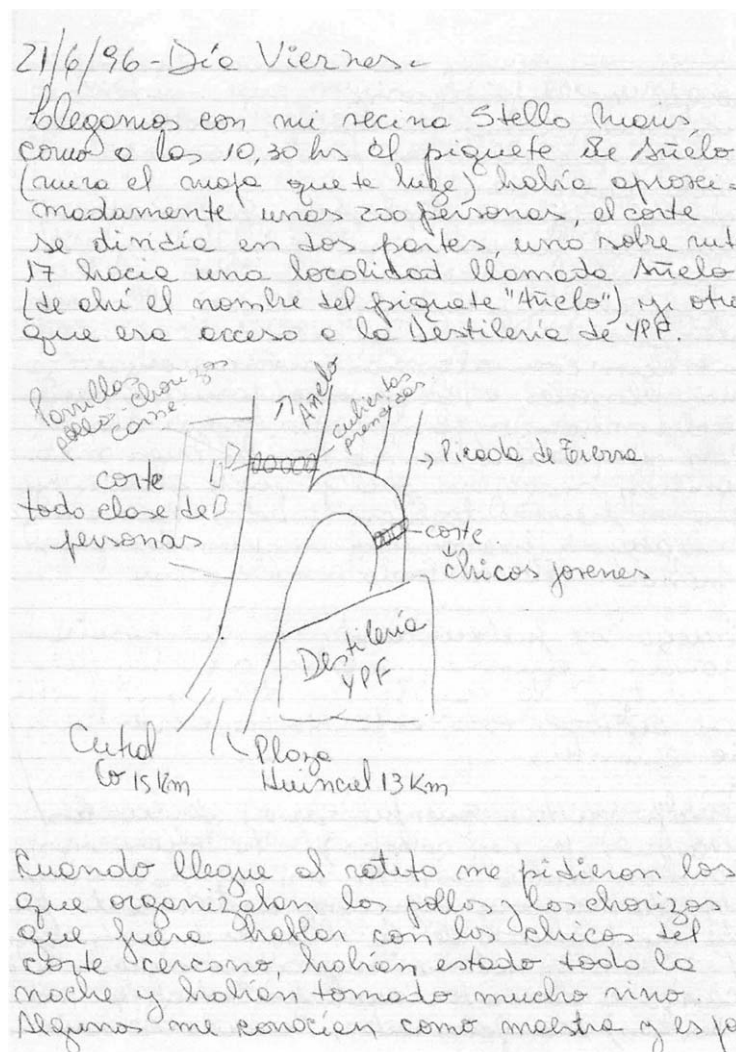 21/6/96-Día Viernes-
Llegamos con mi vecina Stella Maris,
como a las 10,30 hs al piquete de Añelo
(mira el mapa que te hice) había aproxi-
madamente unas 200 personas, el corte
se dividía en dos partes, una sobre ruta
17 hacia una localidad llamada Añelo
(de ahí el nombre del piquete "Añelo") y otra
que era acceso a la Destilería de YPF.
Parrillas
pollos-chorizos
carne.
↑ Añelo
cubiertas
prendidas
→ Picada de Tierra
corte
toda clase de
personas
corte
chicos jovenes
Destilería
YPF
Cutral
Co 15 Km
Plaza
Huincul 13 Km
Cuando llegue al ratito me pidieron los
que organizaban los pollos y los chorizos
que fuera hablar con los chicos del
corte cercano, habían estado toda la
noche y habían tomado mucho vino.
Algunos me conocían como maestra y es pa